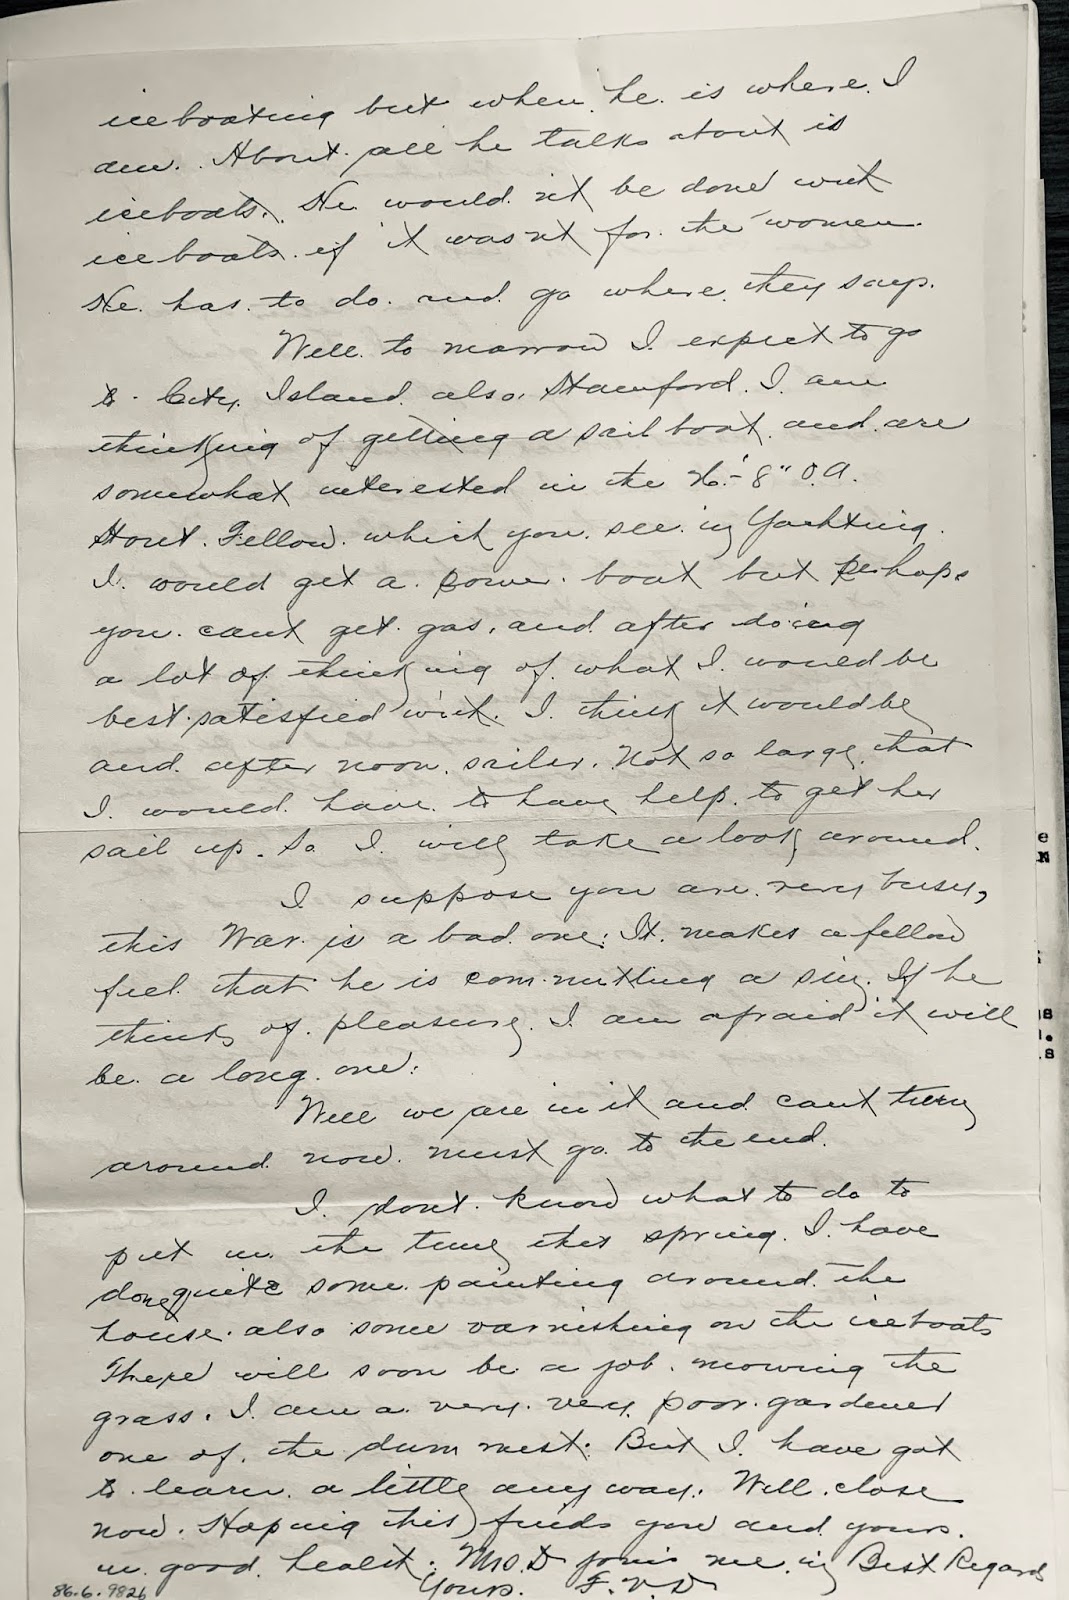 iceboating but when he is where I
am. About all he talks about is
iceboats. He would nt be done with
iceboats if it wasnt for the women.
He has to do and go where they says.
Well to morrow I expect to go
to City Island also Stamford. I am
thinking of getting a sail boat and are
somewhat interested in the 8" O.A.
Stout Fellow which you see in Yachting.
I would get a power boat but Perhaps
you cant get gas, and after doing
a lot of thinking of what I would be
best satisfied with. I think it would be
and after noon sailer. Not so large that
I would have to have help to get her
sail up. So I will take a look around.
I suppose you are very busy,
this War is a bad one: It makes a fellow
feel that he is committing a sin If he
thinks of pleasure I am afraid it will
be a long one:
Well we are in it and cant turn
around now must go to the end.
I dont know what to do to
put in the time this spring. I have
done quite some painting around the
house also some varnishing on the iceboats
There will soon be a job mowing the
grass. I am a very very poor gardener
one of the dum mest. But I have got
to learn a little any way. Will close
now. Hoping this finds you and yours
in good health. Mrs D joins me in Best Regards
Yours F. V. D
86.6.982b
e
N
s
s